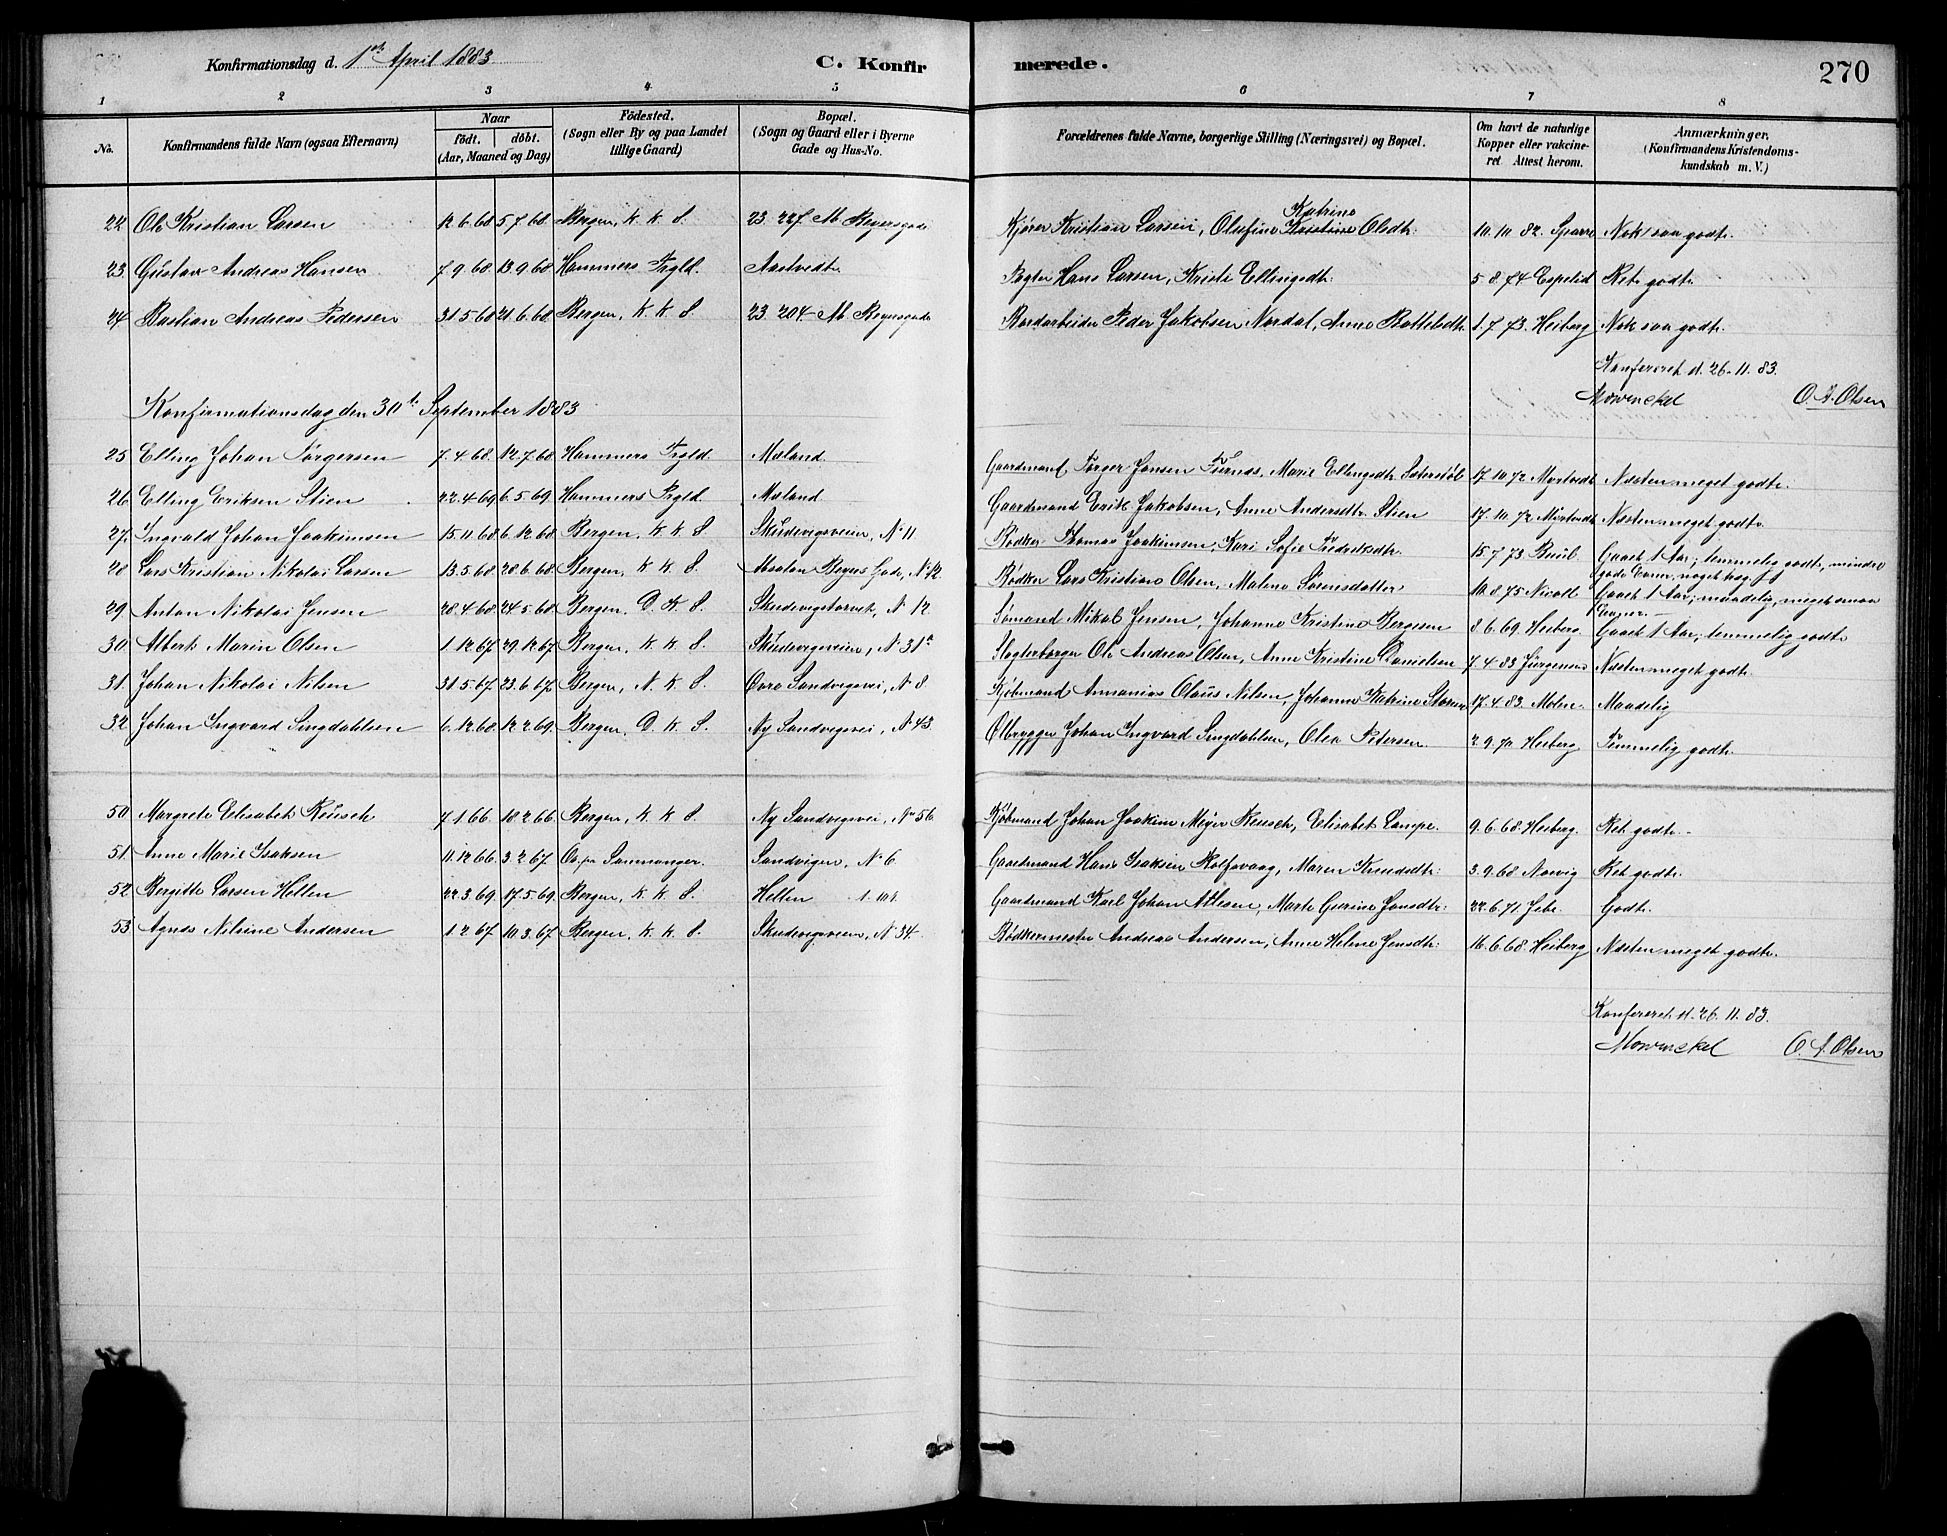 Konfirmationsdag d. 1ste April 1883. C. Konfirmerede. 270
1 2 3 4 5 6 7 8
No. Konfirmandens fulde Navn (ogsaa Efternavn) Naar födt. döbt. (Aar, Maaned og Dag) Födested. (Sogn eller By og paa Landet tillige Gaard) Bopæl. (Sogn og Gaard eller i Byerne Gade og Hus-No. Forældrenes fulde Navne, borgerlige Stilling (Næringsvei) og Bopæl. Om havt de naturlige Kopper eller vakcineret Attest herom. Anmærkninger. (Konfirmandens Kristendomskundskab m. V.)
22 Ole Kristian Larsen 12.6.68 5.7.68 Bergen, K. K. S. 23. 227 M Beyersgade Kjører Kristian Larsen, Olufine Kristine Katrine Olsdtr. 10.10 82. Sparre Nok saa godt.
23. Gustav Andreas Hansen 7.9.68 13.9.68 Hammers Prgld. Aastvedt Pagter Hans Larsen, Kristi Ellingsdtr. 5 8.74 Espelid Ret godt.
24 Bastian Andreas Pedersen 31.5.68 21.6.68 Bergen, K. K. S. 23. 204 M Beyersgade Bordarbeider Peder Jakobsen Nordal, Anne Bottelsdtr. 1.7 73. Heiberg Nok saa godt.
Konfereret d. 26.11.83.
Mowinckel O. A. Olsen
Konfirmationsdag den 30te September 1883
25 Elling Johan Torgersen 7.4.68. 12.7.68 Hammers Prgld. Mæland Gaardmand Torger Jonsen Tiernes, Marie Ellingsdtr. Sæterstøl 17.10.72 Myrtvedt Næsten meget godt.
26. Elling Eriksen Stien 22.4.69 6.5.69. Hammers Prgld. Mæland Gaardmand Erik Jakobsen, Anne Andersdtr. Stien 17.10.72 Myrtvedt Næsten meget godt.
27. Ingvald Johan Joakimsen 15.11.68 6.12.68 Bergen, K. K. S. Skudevigsveien, No 11 Bødker Thomas Joakimsen, Kari Sofie Fredriksdtr. 15.7 73 Gaaet 1 Aar; temmelig godt, mindre gode Evner, noget
28 Lars Kristian Nikolai Larsen 13.5.68 28.6.68 Bergen, K. K. S. Absalon Beyers Gade, No 12. Bødker Lars Kristian Olsen, Malene Svensdatter 10.8.75 Nicoll Gaaet 1 Aar; maadelig, meget smaa Evner.
29 Anton Nikolai Jensen 28.4.68 24.5.68 Bergen, D. K. S. Skudevigstorvet, No 12 Sømand Mikal Jensen, Johanne Kristine Bergesen 8.6.69 Heiberg. Gaaet 1 Aar; temmelig godt.
30. Albert Marin Olsen 1.12.67 29.12.67 Bergen, K. K. S. Skudevigsveien, No 31a Slagterborger Ole Andreas Olsen, Anne Kristine Danielsen 7.4.83 Jürgensen Næsten meget godt.
31. Johan Nikolai Nilsen 31.5.67 23.6.67 Bergen, N. K. S. Øvre Sandvigsvei, No 8. Kjøbmand Annanias Olaus Nilsen, Johanne Katrine 17.4.83. Maadelig
32 Johan Ingvard Singdahlsen 6.12.68 12.2.69. Bergen, D. K. S. Ny Sandvigsvei, No 43. Ølbrygger Johan Ingvard Singdahlsen, Olea Petersen. 2.9.70 Heiberg Temmelig godt.
50. Margrete Elisabet Reusch 7.1.66 18.2.66 Bergen, K. K. S. Ny Sandvigsvei, No 56 Kjøbmand Johan Joakim Meyer Reusch, Elisabet Lampe. 9.6.68 Heiberg. Ret godt.
51. Anne Marie Isaksen 11.12.66. 3.2.67. Os, pr Sammanger. Sandvigen, No 6 Gaardmand Hans Isaksen Rolfsvaag, Maren Knudsdtr. 3.9.68 Norvig Ret godt.
52. Bergitte Larsen Hellen 22.3.69 17.5.69. Bergen, K. K. S. Hellen Gaardmand Karl Johan Attesen, Marte Gurine Jonsdtr. 22.6.71 Jebe. Godt.
53. Agnes Nilsine Andersen 1.2.67 10.3.67 Bergen, K. K. S. Skudevigsveien, No 34. Bødkermester Andreas Andersen, Anne Helene Jensdtr. 16.6.68 Heiberg Næsten meget godt.
Konfereret d. 26.11.83.
Mowinckel O. A. Olsen